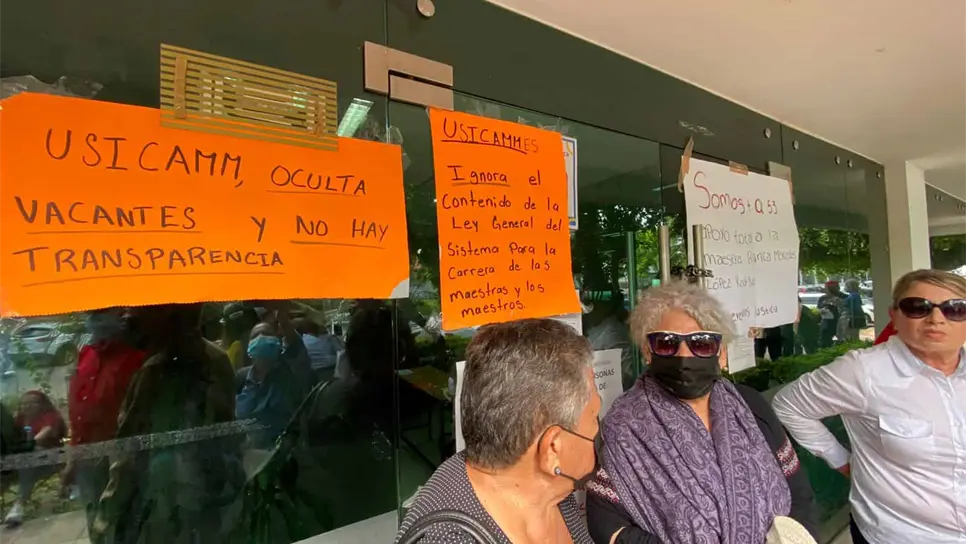 USICAMM, OCULTA
VACANTES y NO HAY
TRANSPARENCIA
USICAMMES
Ignora el
Contenido de la
Ley General del
Sistema Para la
Carrera de las
maestras y los
maestros.
Somos + d 53
Apoyo total a la
maestra Blanca
López
Justicia
PERSONAS
DE